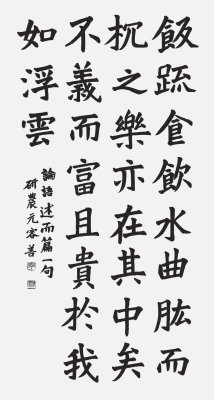 飯疏食飮水曲肱而
枕之樂亦在其中矣
不義而富且貴於我
如浮雲
論語述而篇一句
硏農元容善